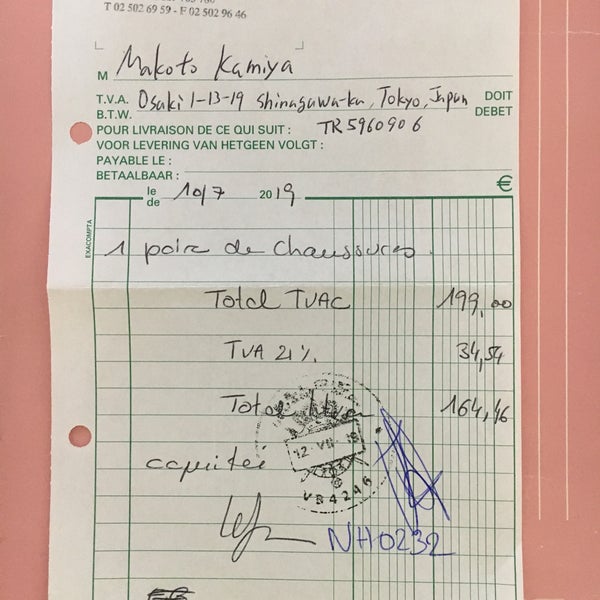 T 02 502 69 59 - F 02 502 96 46
M Makoto Kamiya
T.V.A. Osaki 1-13-19 Shinagawa-ka, Tokyo, Japan DOIT
B.T.W. DEBET
POUR LIVRAISON DE CE QUI SUIT : TR5960906
VOOR LEVERING VAN HETGEEN VOLGT :
PAYABLE LE :
BETAALBAAR :
€
le 10/7 2019
de
EXACOMPTA
1 paire de chaussures
Total TVAC 199,00
TVA 21% 34,54
Total 164,46
12 VII 19
VB4246
NH0232